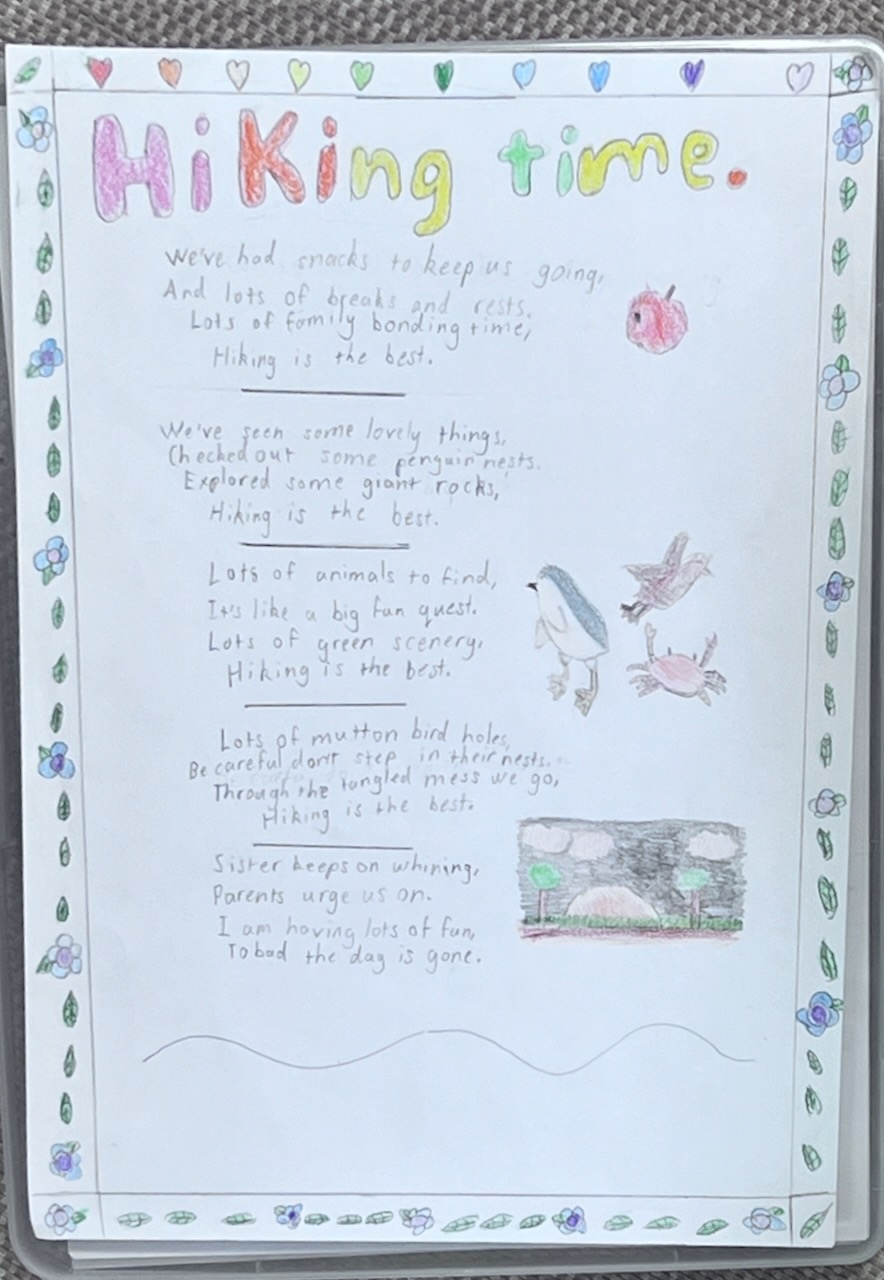 Hiking time.
We've had snacks to keep us going,
And lots of breaks and rests.
Lots of family bonding time,
Hiking is the best.
We've seen some lovely things,
Checked out some penguin nests.
Explored some giant rocks,
Hiking is the best.
Lots of animals to find,
It's like a big fun quest.
Lots of green scenery,
Hiking is the best.
Lots of mutton bird holes,
Be careful don't step in their nests.
Through the tangled mess we go,
Hiking is the best.
Sister keeps on whining,
Parents urge us on.
I am having lots of fun,
To bad the day is gone.